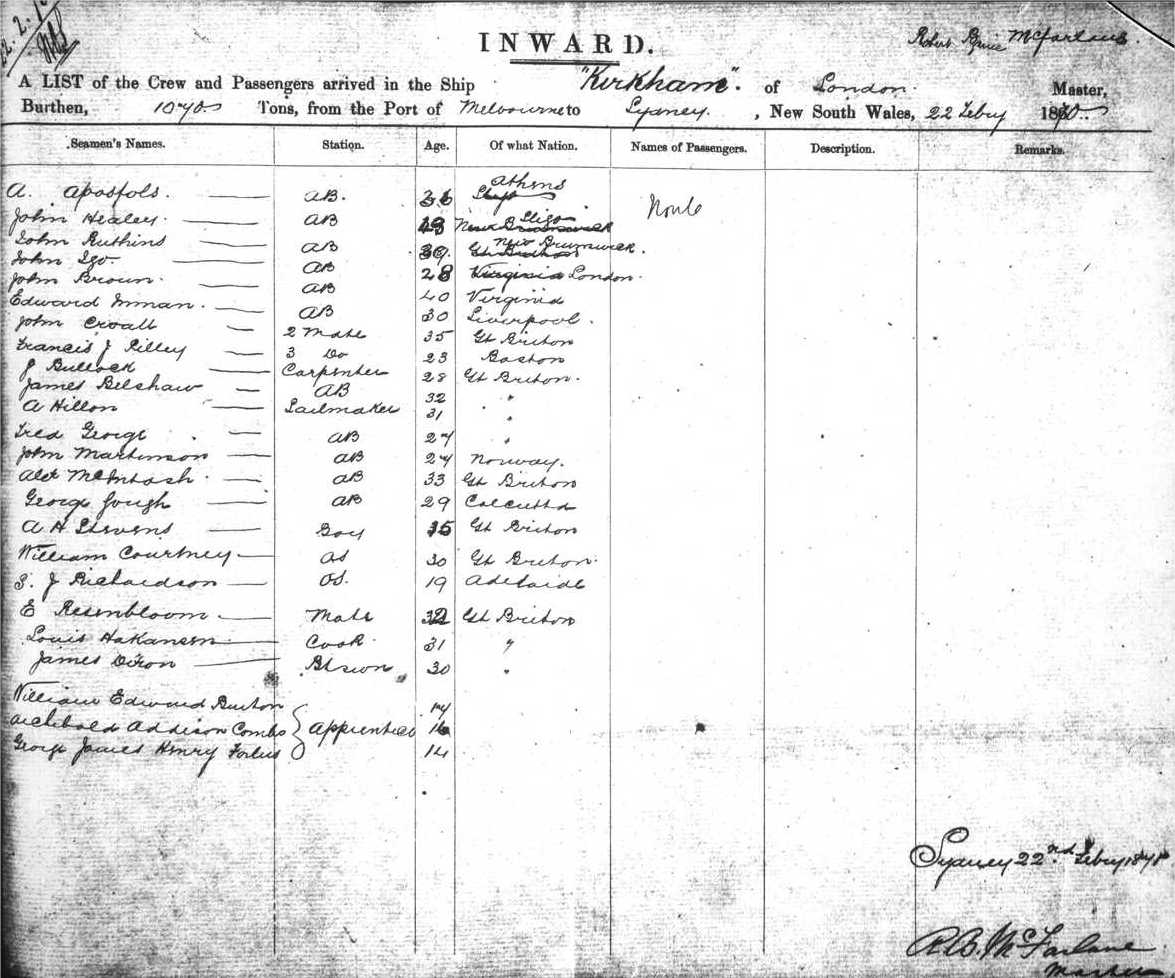 22. 2.
INWARD.
Robert Bruce McFarlane.
A LIST of the Crew and Passengers arrived in the Ship "Kirkham" of London. Master,
Burthen, Tons, from the Port of Melbourne to Sydney. , New South Wales, 22 Febry 18
Seamen's Names. Station. Age. Of what Nation. Names of Passengers. Description. Remarks.
A. Apostols. AB. 36 Athens None
John Healey. AB Sligo
John Ruthins AB New Brunswick.
John Igo. AB 28 Virginia London.
John Brown. AB 40 Virginia
Edward Inman. AB 30 Liverpool.
John Croall 2 Mate 35 Gt Briton
Francis J Rilley 3 Do 23 Boston
J Bullock Carpenter 28 Gt Briton.
James Belshaw AB 32 "
A Hillon Sailmaker 31 "
Fred George AB 27 "
John Martinson AB 27 Norway.
Alex McIntosh AB 33 Gt Briton
George Gough AB 29 Calcutta
A H Stevens Boy 15 Gt Briton
William Courtney AS 30 Gt Briton.
J Richardson OS. 19 Adelaide
E Rosenbloom Mate 32 Gt Briton
Louis Hakansen Cook 31 "
James Dixon 30 "
William Edward Burton
Archibald Addison Combs Apprentices 16
George James Henry 14
Sydney 22nd Febry
R.B. McFarlane